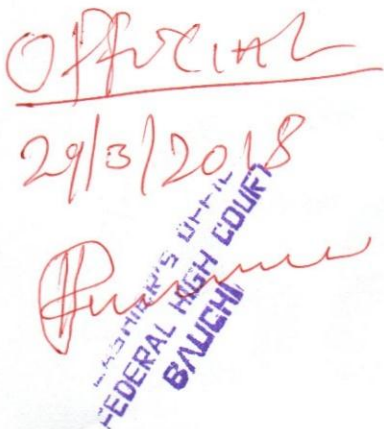 Official
29/3/2018
CASHIER'S OFFIC
FEDERAL HIGH COURT
BAUCHI